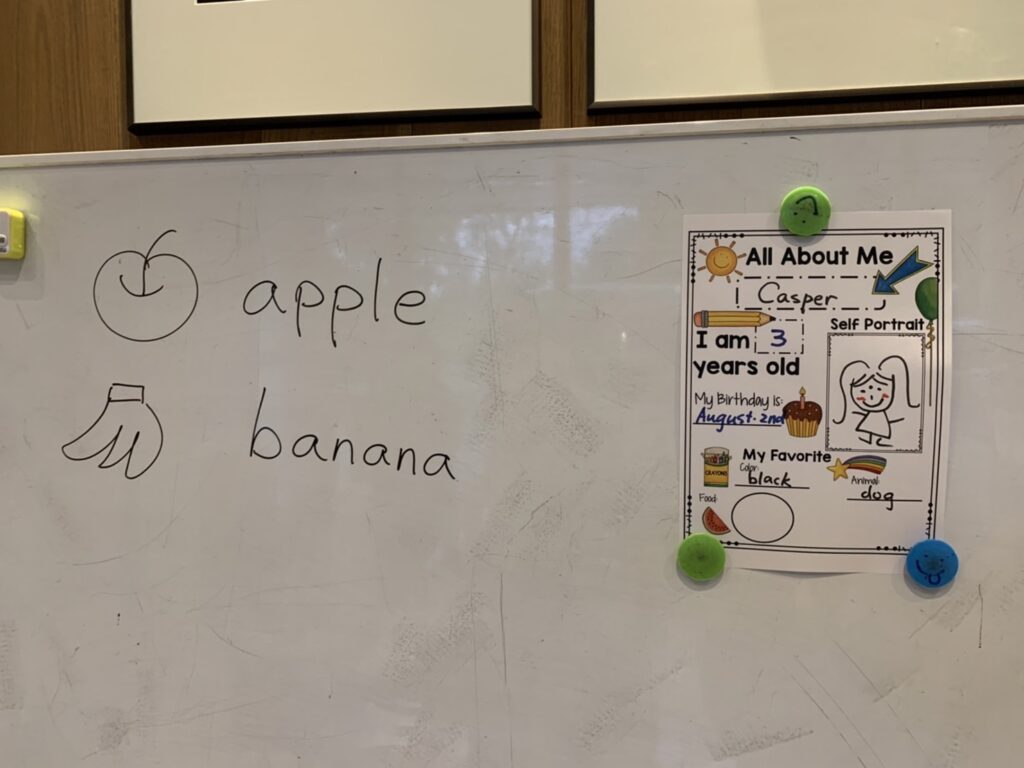 apple
banana
All About Me
Casper
I am 3
years old
Self Portrait
My Birthday is:
August. 2nd
My Favorite
CRAYONS
Color:
black
Animal:
dog
Food: